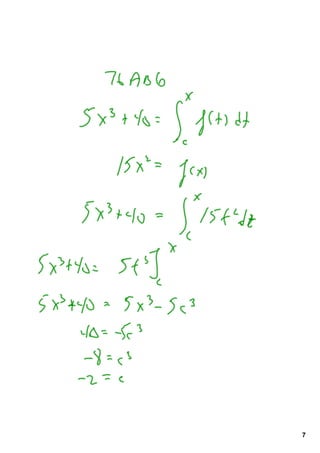 76 AB6
5x³ + 40 = ∫_c^x f(t) dt
15x² = f(x)
5x³+40 = ∫_c^x 15t² dt
5x³+40 = 5t³]_c^x
5x³+40 = 5x³ - 5c³
40 = -5c³
-8 = c³
-2 = c
7